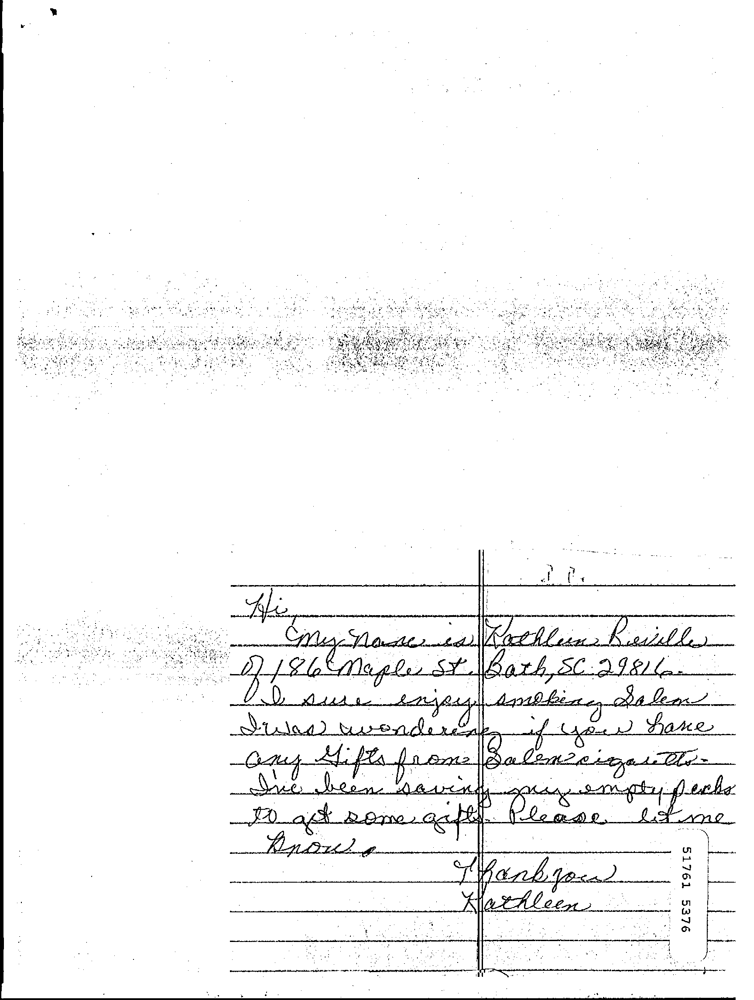 Hi,
My name is Kathleen Reville
of 186 Maple St. Bath, SC. 29816.
I sure enjoy smoking Salem
I was wondering if you have
any Gifts from Salem cigaretts.
I've been saving my empty packs
to get some gifts. Please let me
know.
Thank you
Kathleen
51761 5376